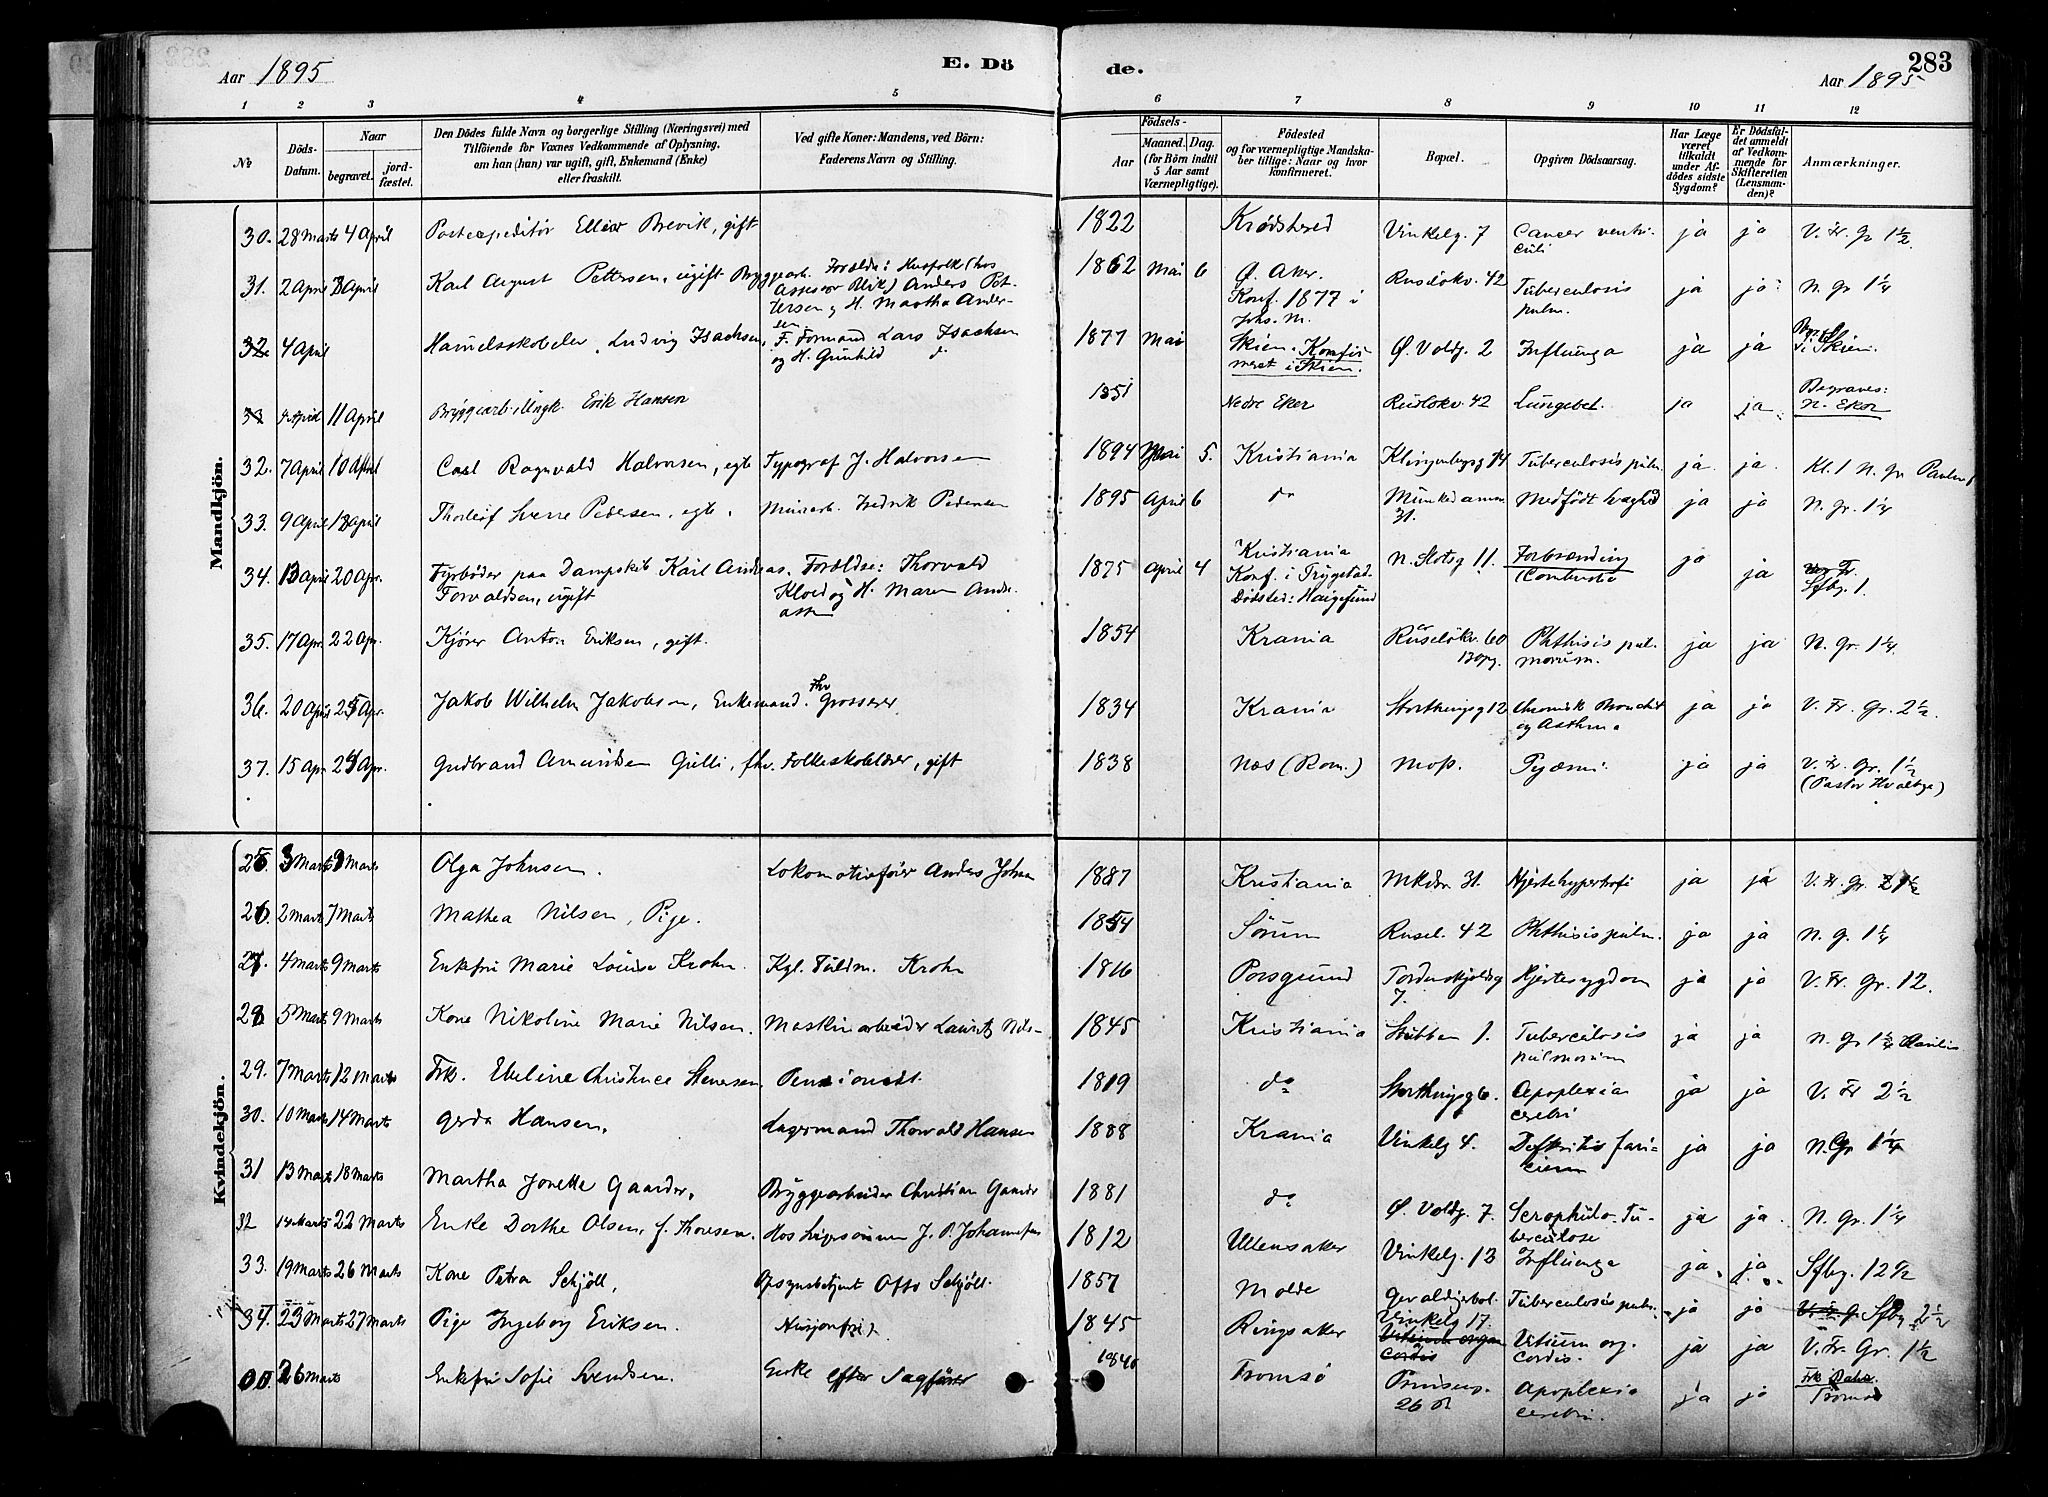 Aar 1895
E. Dö
de.
283
Aar 1895
1 2 3 4 5 6 7 8 9 10 11 12
No
Döds-Datum.
Naar
begravet.
jord-fæstet.
Den Dödes fulde Navn og borgerlige Stilling (Næringsvei) med
Tilföiende for Voxnes Vedkommende af Oplysning,
om han (hun) var ugift, gift, Enkemand (Enke)
eller fraskilt.
Ved gifte Koner: Mandens, ved Börn:
Faderens Navn og Stilling.
Födsels-
Aar
Maaned. Dag.
(for Börn indtil
5 Aar samt
Værnepligtige).
Födested
og for værnepligtige Mandska-
ber tillige: Naar og hvor
konfirmeret.
Bopæl.
Opgiven Dödsaarsag.
Har Læge
været
tilkaldt
under Af-
dödes sidste
Sygdom?
Er Dödsfal-
det anmeldt
af Vedkom-
mende for
Skifteretten
(Lensman-
den)?
Anmærkninger.
Mandkjön.
30. 28 Marts 4 April Postexpeditör Ellior Brevik, gift 1822 Krødshered Vinkelg. 7 Cancer ventri-
culi ja ja V. Fr. Gr 1 1/2.
31. 2 April 8 April Karl August Pettersen, ugift Bryggearb. Forældre: Husfolk (hos
Assessor Blik) Anders Pet-
tersen og H. Martha Ander-
sen 1862 Mai 6 Ø. Aker.
Konf. 1877 i
Johs. M. Ruselökv. 42 Tuberculosis
pulm. ja ja N. gr 1 1/4
32. 4 April Handelsskoleelev, Ludvig Isachsen, F. Formand Lars Isachsen
og H. Gunhild do 1877 Mai Skien. Konfir-
meret i Skien. Ø. Voldg. 2 Influenza ja ja Begr.
i Skien.
33 4 April 11 April Bryggearb. Ungk. Erik Hansen 1851 Nedre Eker Ruslökv. 42 Lungebet. ja ja Begraves:
N. Eker
32. 7 April 10 April Carl Ragnvald Halvorsen, egte Typograf J. Halvorsen 1894 Mai 5. Kristiania Klingenbergg 14 Tuberculosis pulm. ja ja Kl. 1 N. gr
33. 9 April 13 April Thorleif Sverre Pedersen, egte. Murarb. Fredrik Pedersen 1895 April 6 do Munkedamsv.
31. Medfödt svaghed ja ja N. gr. 1 1/4
34. 13 April 20 Apr. Fyrböder paa Dampskib Karl Andreas
Torvaldsen, ugift Forældre: Thorvald
og H. Maren Andre-
1875 April 4 Kristiania
Konf. i Trygstad
Dödsted: Haugesund N. Slotsg 11. Forbrænding
(Combustio ja ja Fr.
Sfbg. 1.
35. 17 Apr. 22 Apr. Kjörer Anton Eriksen, gift. 1854 Krania Ruselökv. 60
Bopg. Phthisis pul-
monum. ja ja N. Gr. 1 1/4.
36. 20 April 25 Apr. Jakob Wilhelm Jakobsen, Enkemand. Fhv Grosserer 1834 Krania Storthingsg 12 Chronisk Bronchit
og Asthma ja ja V. Fr. Gr. 2 1/2.
37. 15 Apr 24 Apr. Gudbrand Amundsen Gulli, fhv. Folkeskolelærer, gift 1838 Næs (Rom.) Moss. Pyæmi. ja ja V. Fr. Gr. 1 1/2
(Pastor Hvalbye)
Kvindekjön.
25. 3 Marts 9 Marts Olga Johnsen. Lokomotivförer Anders Johnsen 1887 Kristiania Mkdv. 31. Hjertehypertrofi ja ja V. Fr. Gr. 1 1/2
26. 2 Marts 7 Marts Mathea Nilsen, Pige. 1854 Sörum Rusel. 42 Phthisis pulm. ja ja N. g. 1 1/4
27. 4 Marts 9 Marts Enkefru Marie Louise Krohn. Kgl. Fuldm. Krohn 1816 Porsgrund Tordenskjoldsg
7. Hjertesygdom ja ja V. Fr. Gr. 12.
28. 5 Marts 9 Marts Kone Nikoline Marie Nilsen. Maskinarbeider Laurits Nils- 1845 Kristiania Stubben 1. Tuberculosis
pulmonum ja ja N. Gr 1 3/4
29. 7 Marts 12 Marts Frk. Eveline Christence Stenersen. Pensionist. 1819 do Storthingsg 6. Apoplexia
cerebri ja ja V. Fr 2 1/2
30. 10 Marts 14 Marts Gerda Hansen. Lagermand Thorvald Hansen 1888 Krania Vinkelg 4. Difteritis fau-
cium ja ja N. Gr 1 1/4
31 13 Marts 18 Marts Martha Jonette Gaarder, Bryggearbeider Christian Gaarder 1881 do Ø. Voldg. 7. Scrophulo-Tu-
berculose ja ja N. Gr. 1 1/4
32 14 Marts 22 Marts Enke Dorthe Olsen, f. Thoresen. Hos Svigersönnen J. P. Johannesen 1812 Ullensaker Vinkelg. 13 Influenza ja ja Sfbg. 12 1/2
33. 19 Marts 26 Marts Kone Petra Schjöll, Opsynsbetjent Otto Schjöll. 1857 Molde Tuberculosis pulm. ja ja Sfbg 2 1/2
34. 23 Marts 27 Marts Pige Ingeborg Eriksen. Husjomfru. 1845 Ringsaker Vinkelg 17.
Vitium organ
cordis Vitium org.
cordis. ja ja V. Fr. Gr. 1 1/2
00. 26 Marts Enkefru Sofie Svendsen. Enke efter Sagförer 1840 Tromsö Prinsensg.
26 Apoplexia
cerebri. ja ja Tromsö